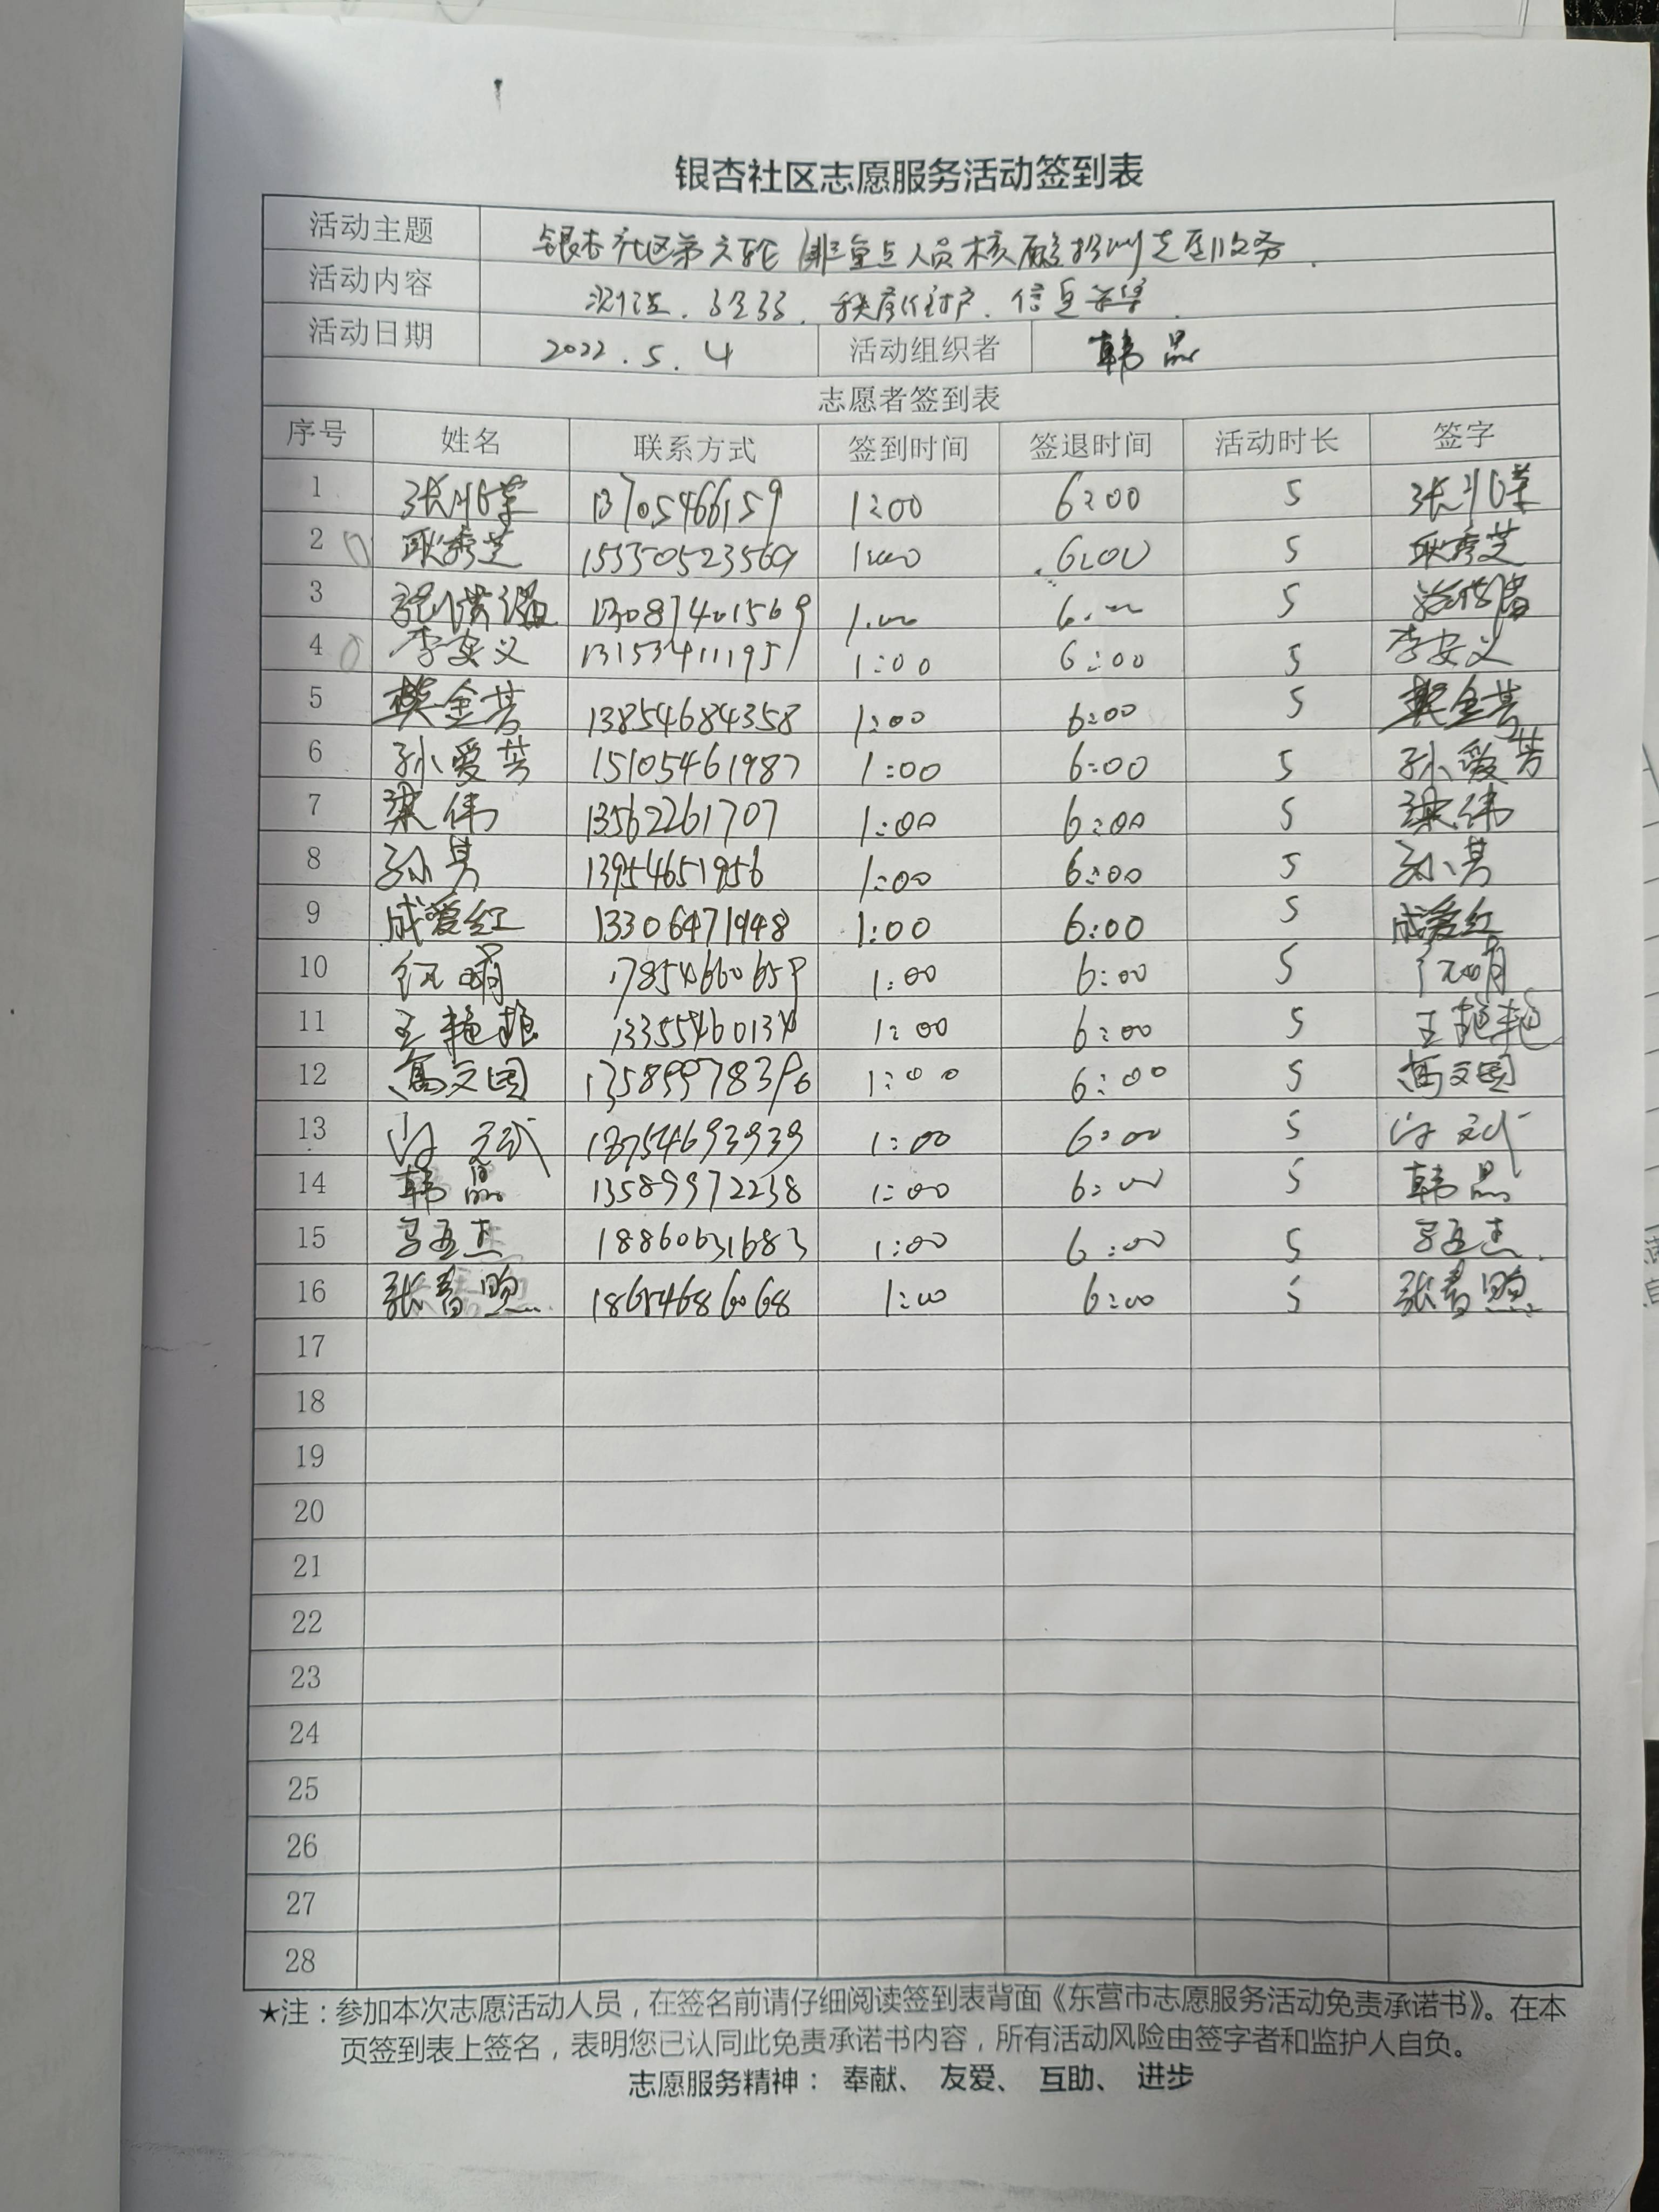 银杏社区志愿服务活动签到表
活动主题 银杏社区第六轮非重点人员核酸检测志愿服务
活动内容 信息登记
活动日期 2022.5.4 活动组织者 韩晶
志愿者签到表
序号 姓名 联系方式 签到时间 签退时间 活动时长 签字
1 13705466159 1:00 6:00 5
2 耿秀芝 15550523569 1:00 6:00 5 耿秀芝
3 13087401569 1:00 6:00 5
4 李安义 13153411195 1:00 6:00 5 李安义
5 樊金芳 13854684358 1:00 6:00 5 樊金芳
6 孙爱芳 15105461987 1:00 6:00 5 孙爱芳
7 梁伟 13562261707 1:00 6:00 5 梁伟
8 孙芳 13954651956 1:00 6:00 5 孙芳
9 成爱红 13306471948 1:00 6:00 5 成爱红
10 17854660659 1:00 6:00 5
11 王艳艳 13355460134 1:00 6:00 5 王艳艳
12 高文国 13589978396 1:00 6:00 5 高文国
13 18754693939 1:00 6:00 5
14 韩晶 13589972238 1:00 6:00 5 韩晶
15 18860631683 1:00 6:00 5
16 张春煦 18654686068 1:00 6:00 5 张春煦
17
18
19
20
21
22
23
24
25
26
27
28
★注：参加本次志愿活动人员，在签名前请仔细阅读签到表背面《东营市志愿服务活动免责承诺书》。在本
页签到表上签名，表明您已认同此免责承诺书内容，所有活动风险由签字者和监护人自负。
志愿服务精神： 奉献、 友爱、 互助、 进步